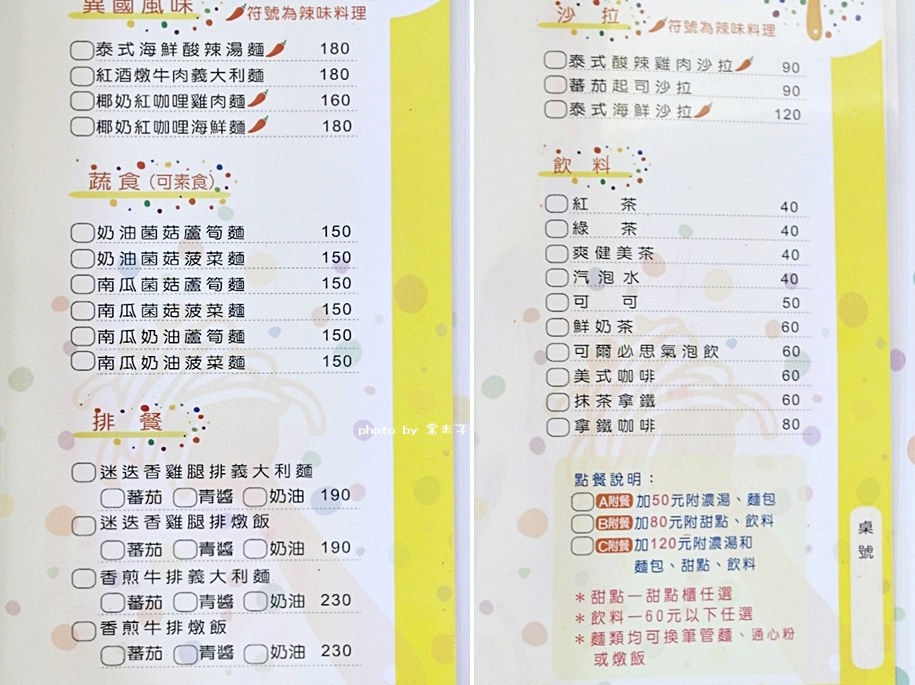 異國風味
符號為辣味料理
泰式海鮮酸辣湯麵 180
紅酒燉牛肉義大利麵 180
椰奶紅咖哩雞肉麵 160
椰奶紅咖哩海鮮麵 180
蔬食(可素食)
奶油菌菇蘆筍麵 150
奶油菌菇菠菜麵 150
南瓜菌菇蘆筍麵 150
南瓜菌菇菠菜麵 150
南瓜奶油蘆筍麵 150
南瓜奶油菠菜麵 150
排餐
迷迭香雞腿排義大利麵
蕃茄 青醬 奶油 190
迷迭香雞腿排燉飯
蕃茄 青醬 奶油 190
香煎牛排義大利麵
蕃茄 青醬 奶油 230
香煎牛排燉飯
蕃茄 青醬 奶油 230
photo by 棠未子
沙拉
符號為辣味料理
泰式酸辣雞肉沙拉 90
蕃茄起司沙拉 90
泰式海鮮沙拉 120
飲料
紅茶 40
綠茶 40
爽健美茶 40
汽泡水 40
可可 50
鮮奶茶 60
可爾必思氣泡飲 60
美式咖啡 60
抹茶拿鐵 60
拿鐵咖啡 80
點餐說明：
A附餐 加50元附濃湯、麵包
B附餐 加80元附甜點、飲料
C附餐 加120元附濃湯和
麵包、甜點、飲料
＊甜點—甜點櫃任選
＊飲料—60元以下任選
＊麵類均可換筆管麵、通心粉
或燉飯
桌號